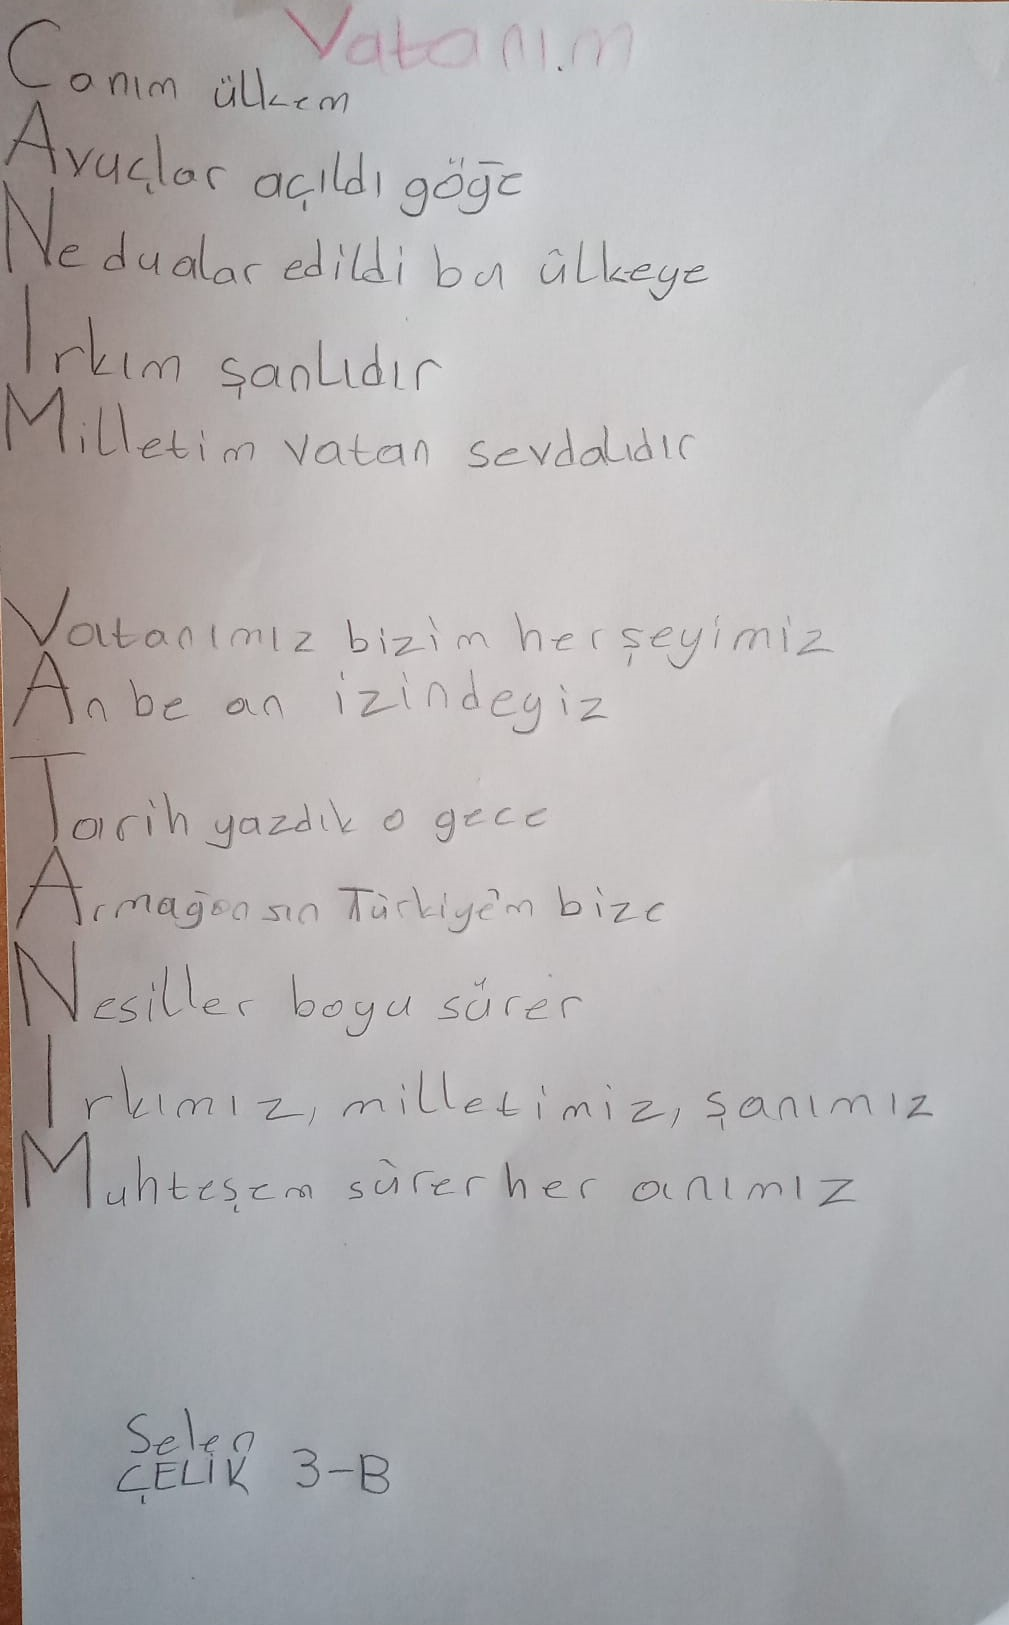 Vatanım
Canım ülkem
Avuçlar açıldı göğe
Ne dualar edildi bu ülkeye
Irkım şanlıdır
Milletim vatan sevdalıdır
Vatanımız bizim herşeyimiz
An be an izindeyiz
Tarih yazdık o gece
Armağansın Türkiye'm bize
Nesiller boyu sürer
Irkımız, milletimiz, şanımız
Muhteşem sürer her anımız
Selen
ÇELİK 3-B